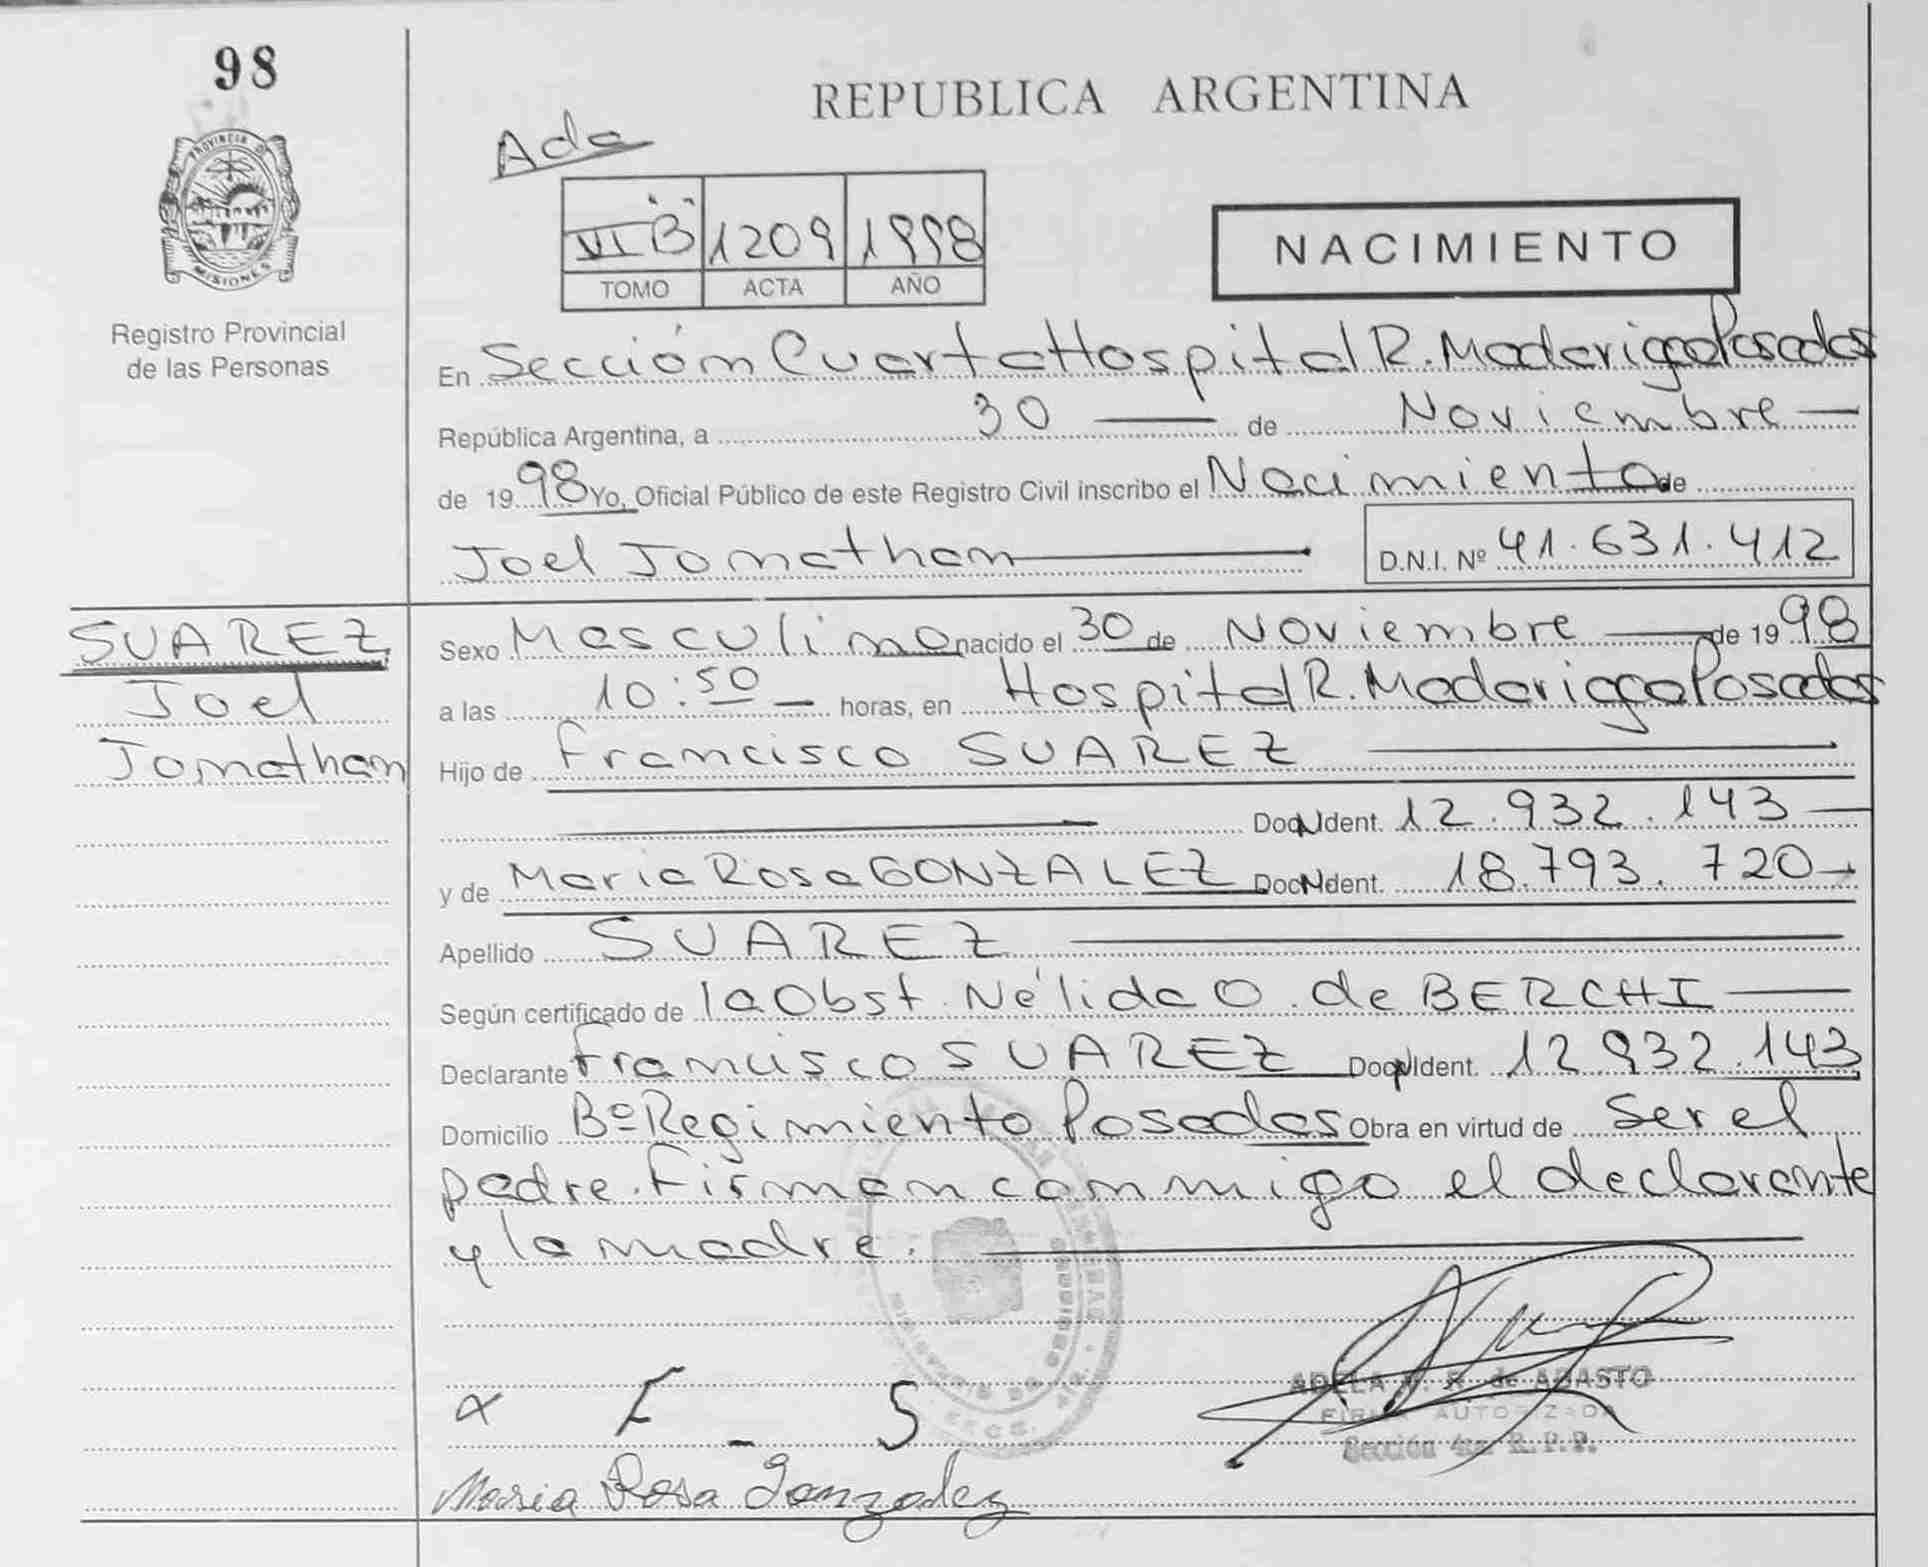 98
REPUBLICA ARGENTINA
PROVINCIA D
MISIONES
Registro Provincial
de las Personas
Ada
VI "B" 1209 1998
TOMO ACTA AÑO
NACIMIENTO
En Sección Cuarta Hospital R. Madariaga Posadas
República Argentina, a 30 de Noviembre
de 19 98 Yo, Oficial Público de este Registro Civil inscribo el Nacimiento de
Joel Jonathan
D.N.I. Nº 41.631.412
SUAREZ
Joel
Jonathan
Sexo Masculino nacido el 30 de Noviembre de 19 98
a las 10:50 horas, en Hospital R. Madariaga Posadas
Hijo de Francisco SUAREZ
Doc N Ident. 12.932.143
y de Maria Rosa GONZALEZ Doc N Ident. 18.793.720
Apellido SUAREZ
Según certificado de la Obst. Nélida O. de BERCHI
Declarante Francisco SUAREZ Doc N Ident. 12.932.143
Domicilio Bº Regimiento Posadas Obra en virtud de ser el
padre. Firman conmigo el declarante
y la madre.
F S
ADELA R. de ABASTO
FIRMA AUTORIZADA
Sección 4ta R.P.P.
Maria Rosa Gonzalez